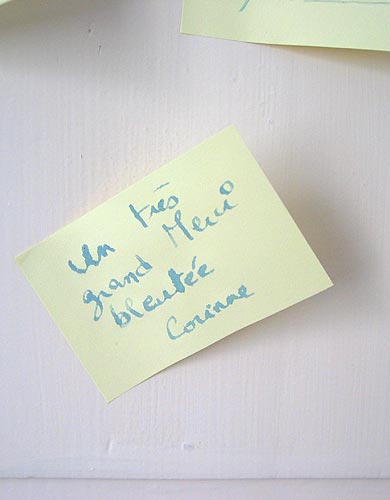 Un très
grand Merci
bleutée
Corinne